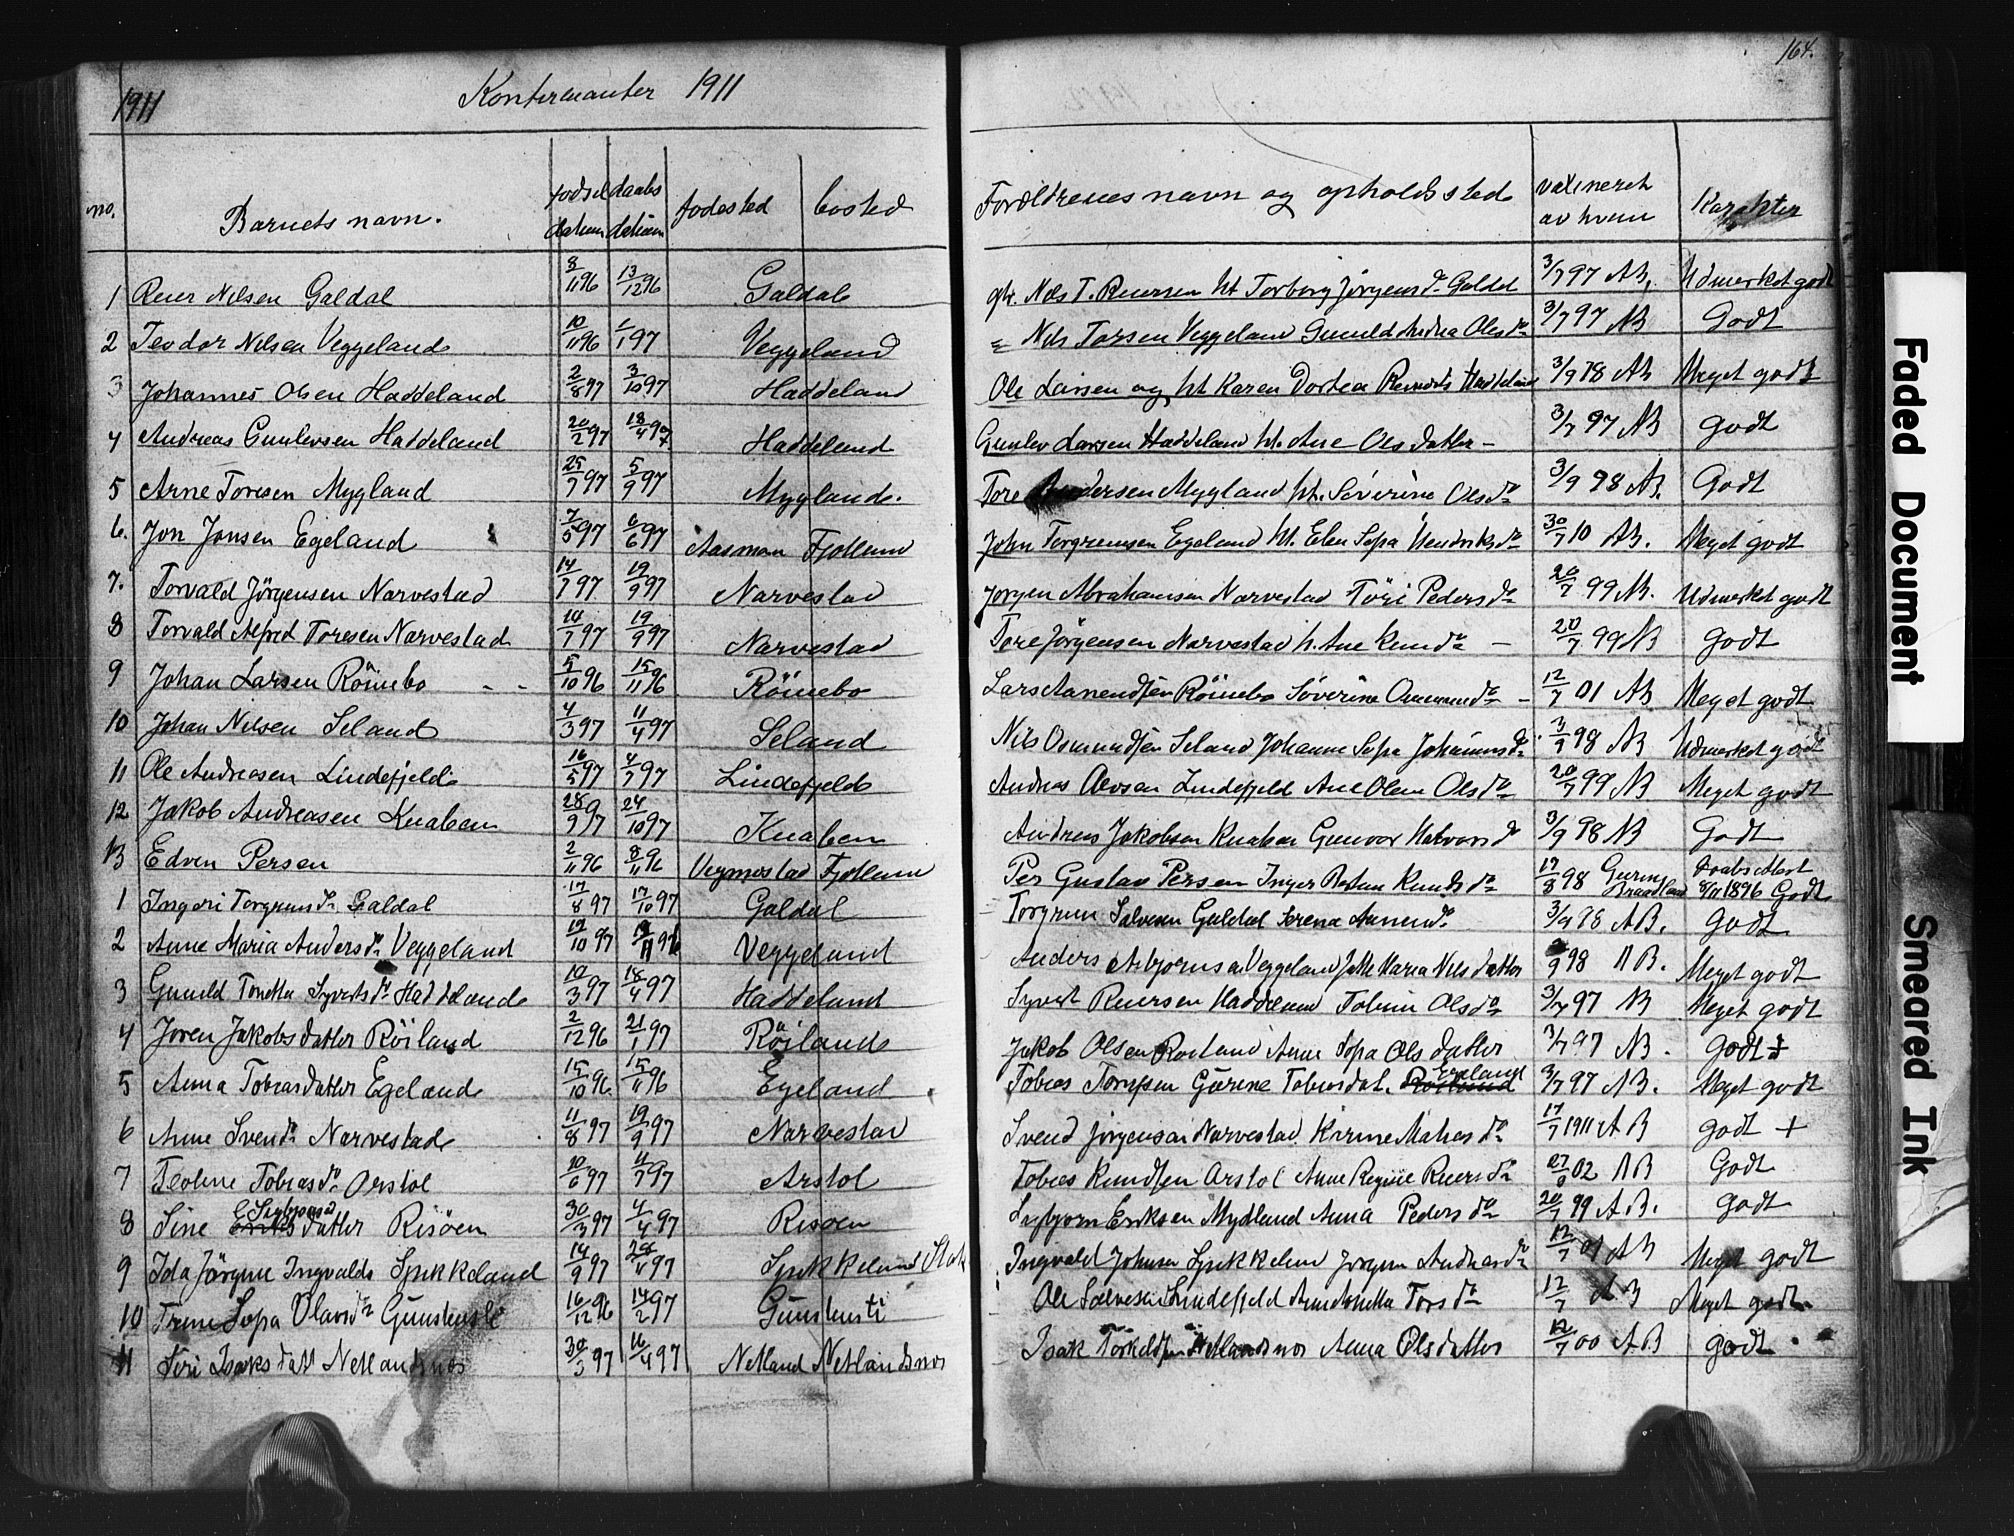 164.
1911 Konfirmanter 1911
no. Barnets navn. fødsel datum daabs datum fødested bosted Forældrenes navn og opholdssted vaxineret av hvem Karakter
1 Reier Nilsen Galdal 8/11 96 13/12 96 Galdal gh. Nils T. Reiersen ht Torborg Jørgensd. Galdal 3/7 97 AB. Udmerket godt
2 Teodor Nilsen Veggeland 10/11 96 1/1 97 Veggeland " Nils Torsen Veggeland Gunild Olsd. 3/7 97 AB Godt
3 Johannes Olsen Haddeland 2/8 97 3/10 97 Haddeland Ole Larsen og ht Karen Dortea Haddeland 3/9 98 AB Meget godt
4 Andreas Gunlevsen Haddeland 20/2 97 18/4 97 Haddeland Gunlev Larsen Haddeland ht. Ane Olsdatter – 3/7 97 AB godt
5 Arne Toresen Mygland 25/7 97 5/9 97 Mygland. Tore Andersen Mygland ht. Severine Olsd. 3/9 98 AB. Godt
6. Jon Jonsen Egeland 7/5 97 6/6 97 Aasman Fjotland John Torgrimsen Egeland ht. Elen Sofa Hendriksd. 30/7 10 AB. Meget godt
7. Torvald Jörgensen Narvestad 14/7 97 19/9 97 Narvestad Jørgen Abrahamsen Narvestad Töri Pedersd. 20/7 99 AB. Udmerket godt
8 Torvald Alfred Toresen Narvestad 14/7 97 19/9 97 Narvestad Tore Jörgensen Narvestad h. Ane Knud. – 20/7 99 AB godt
9 Johan Larsen Röinebo – – 5/10 96 15/11 96 Röinebo Lars Aanendsen Röinebo Söverine Osmundd. – 12/7 01 AB Meget godt
10 Johan Nilsen Seland 4/3 97 11/4 97 Seland Nils Osmundsen Seland Johanne Sofa Johannesd. 3/9 98 AB Udmerket godt
11 Ole Andreasen Lindefjeld 16/5 97 4/7 97 Lindefjeld Andreas Olevsen Lindefjeld Ane Olene Olsd. 20/7 99 AB Meget godt
12 Jakob Andreasen Knaben 28/9 97 24/10 97 Knaben Andreas Jakobsen Knaben Gunvor Halvorsd 3/9 98 AB Godt
13 Edvin Persen 2/11 96 8/11 96 Vegmostad Fjotland Per Gustav Persen Inger Knudsd. 17/8 98 Daabsattest 8/11 1896 Godt
1 Ingeri Torgrimsd. Galdal 17/8 97 17/10 97 Galdal Torgrim Salvesen Galdal Serena Aanend. 3/9 98 AB. godt
2 Anne Maria Andersd. Veggeland 10 97 11 97 Veggeland Anders Asbjørnsen Veggeland Maria Nilsdatter 9 98 AB. Meget godt
3 Gunild Tonetta Syvertsd. Haddeland 10/3 97 18/4 97 Haddeland Syvert Reiersen Haddeland Tobine Olsd. 3/7 97 AB Meget godt
4 Joren Jakobsdatter Röiland 2/12 96 21/1 97 Röiland Jakob Olsen Roiland Anne Sofa Olsdatter 3/7 97 AB. godt
5 Anna Tobiasdatter Egeland 15/10 96. 15/11 96 Egeland Tobias Tomsen Gurine Tobiasdat. Roiland Egeland 3/7 97 AB. Meget godt
6 Anne Svend. Narvestad 11/8 97 19/9 97 Narvestad Svend Jörgensen Narvestad Kirine Matiasd. 17/7 1911 AB godt +
7 Teoline Tobiasd. Arstol 10/6 97 11/7 97 Arstol Tobias Knudsen Arstol Anne Regine Reiersd. 27/9 02 AB Godt
8 Sine Eriksdatter Risöen 30/3 97 4/4 97 Risöen Sigbjørn Eriksen Mydland Anna Pedersd. 20/7 99 AB. godt
9 Ida Jörgine Ingvalds Spikkeland 14/9 97 28/11 97 Spikkeland Ingvald Johnsen Spikkeland Jørgine Andreasd. 12/7 01 AB Meget godt
10 Trine Sofa Olavsd. 16/12 96 14/2 97 Ole Salvesen Lindefjeld Torsd. 12/7 AB Meget godt.
11 Siri Isaksdatt Netlandsnes 30/3 97 16/4 97 Netland Netlandsnes Isak Netlandsnes Anna Olsdatter 12/7 00 AB godt
Faded Document
Smeared Ink